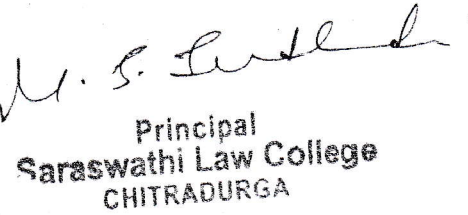 M. S.
Principal
Saraswathi Law College
CHITRADURGA